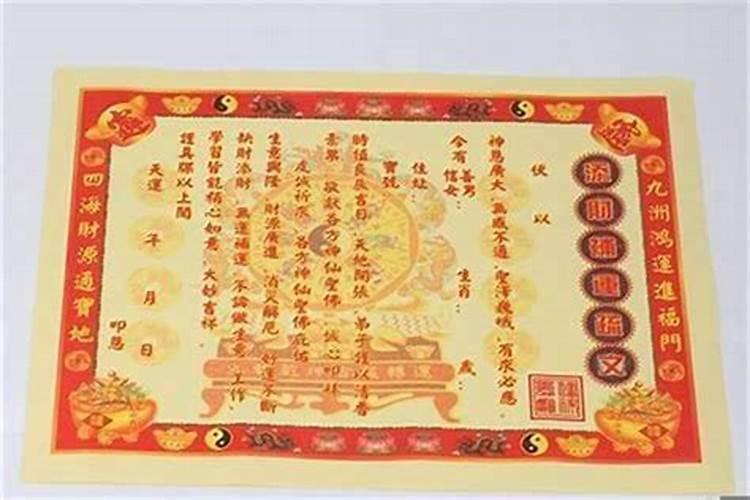 九洲鴻運進福門
添財補運疏文
伏以
神恩廣大 無感不通 聖澤巍峨 有求必應
今有 善男 信女 生肖 歲
住址
寶號
時值良辰吉日 天地開張 弟子 謹以清香
素果 敬獻各方神仙聖佛 誠心叩拜
虔誠祈求 各方神仙聖佛庇佑
生意興隆 財源廣進 消災解厄 好運不斷
缺財添財 無運補運 不論做生意 工作
學習皆能稱心如意 大妙吉祥
謹具疏以上聞
天運 年 月 日
叩恩
四海財源通寶地